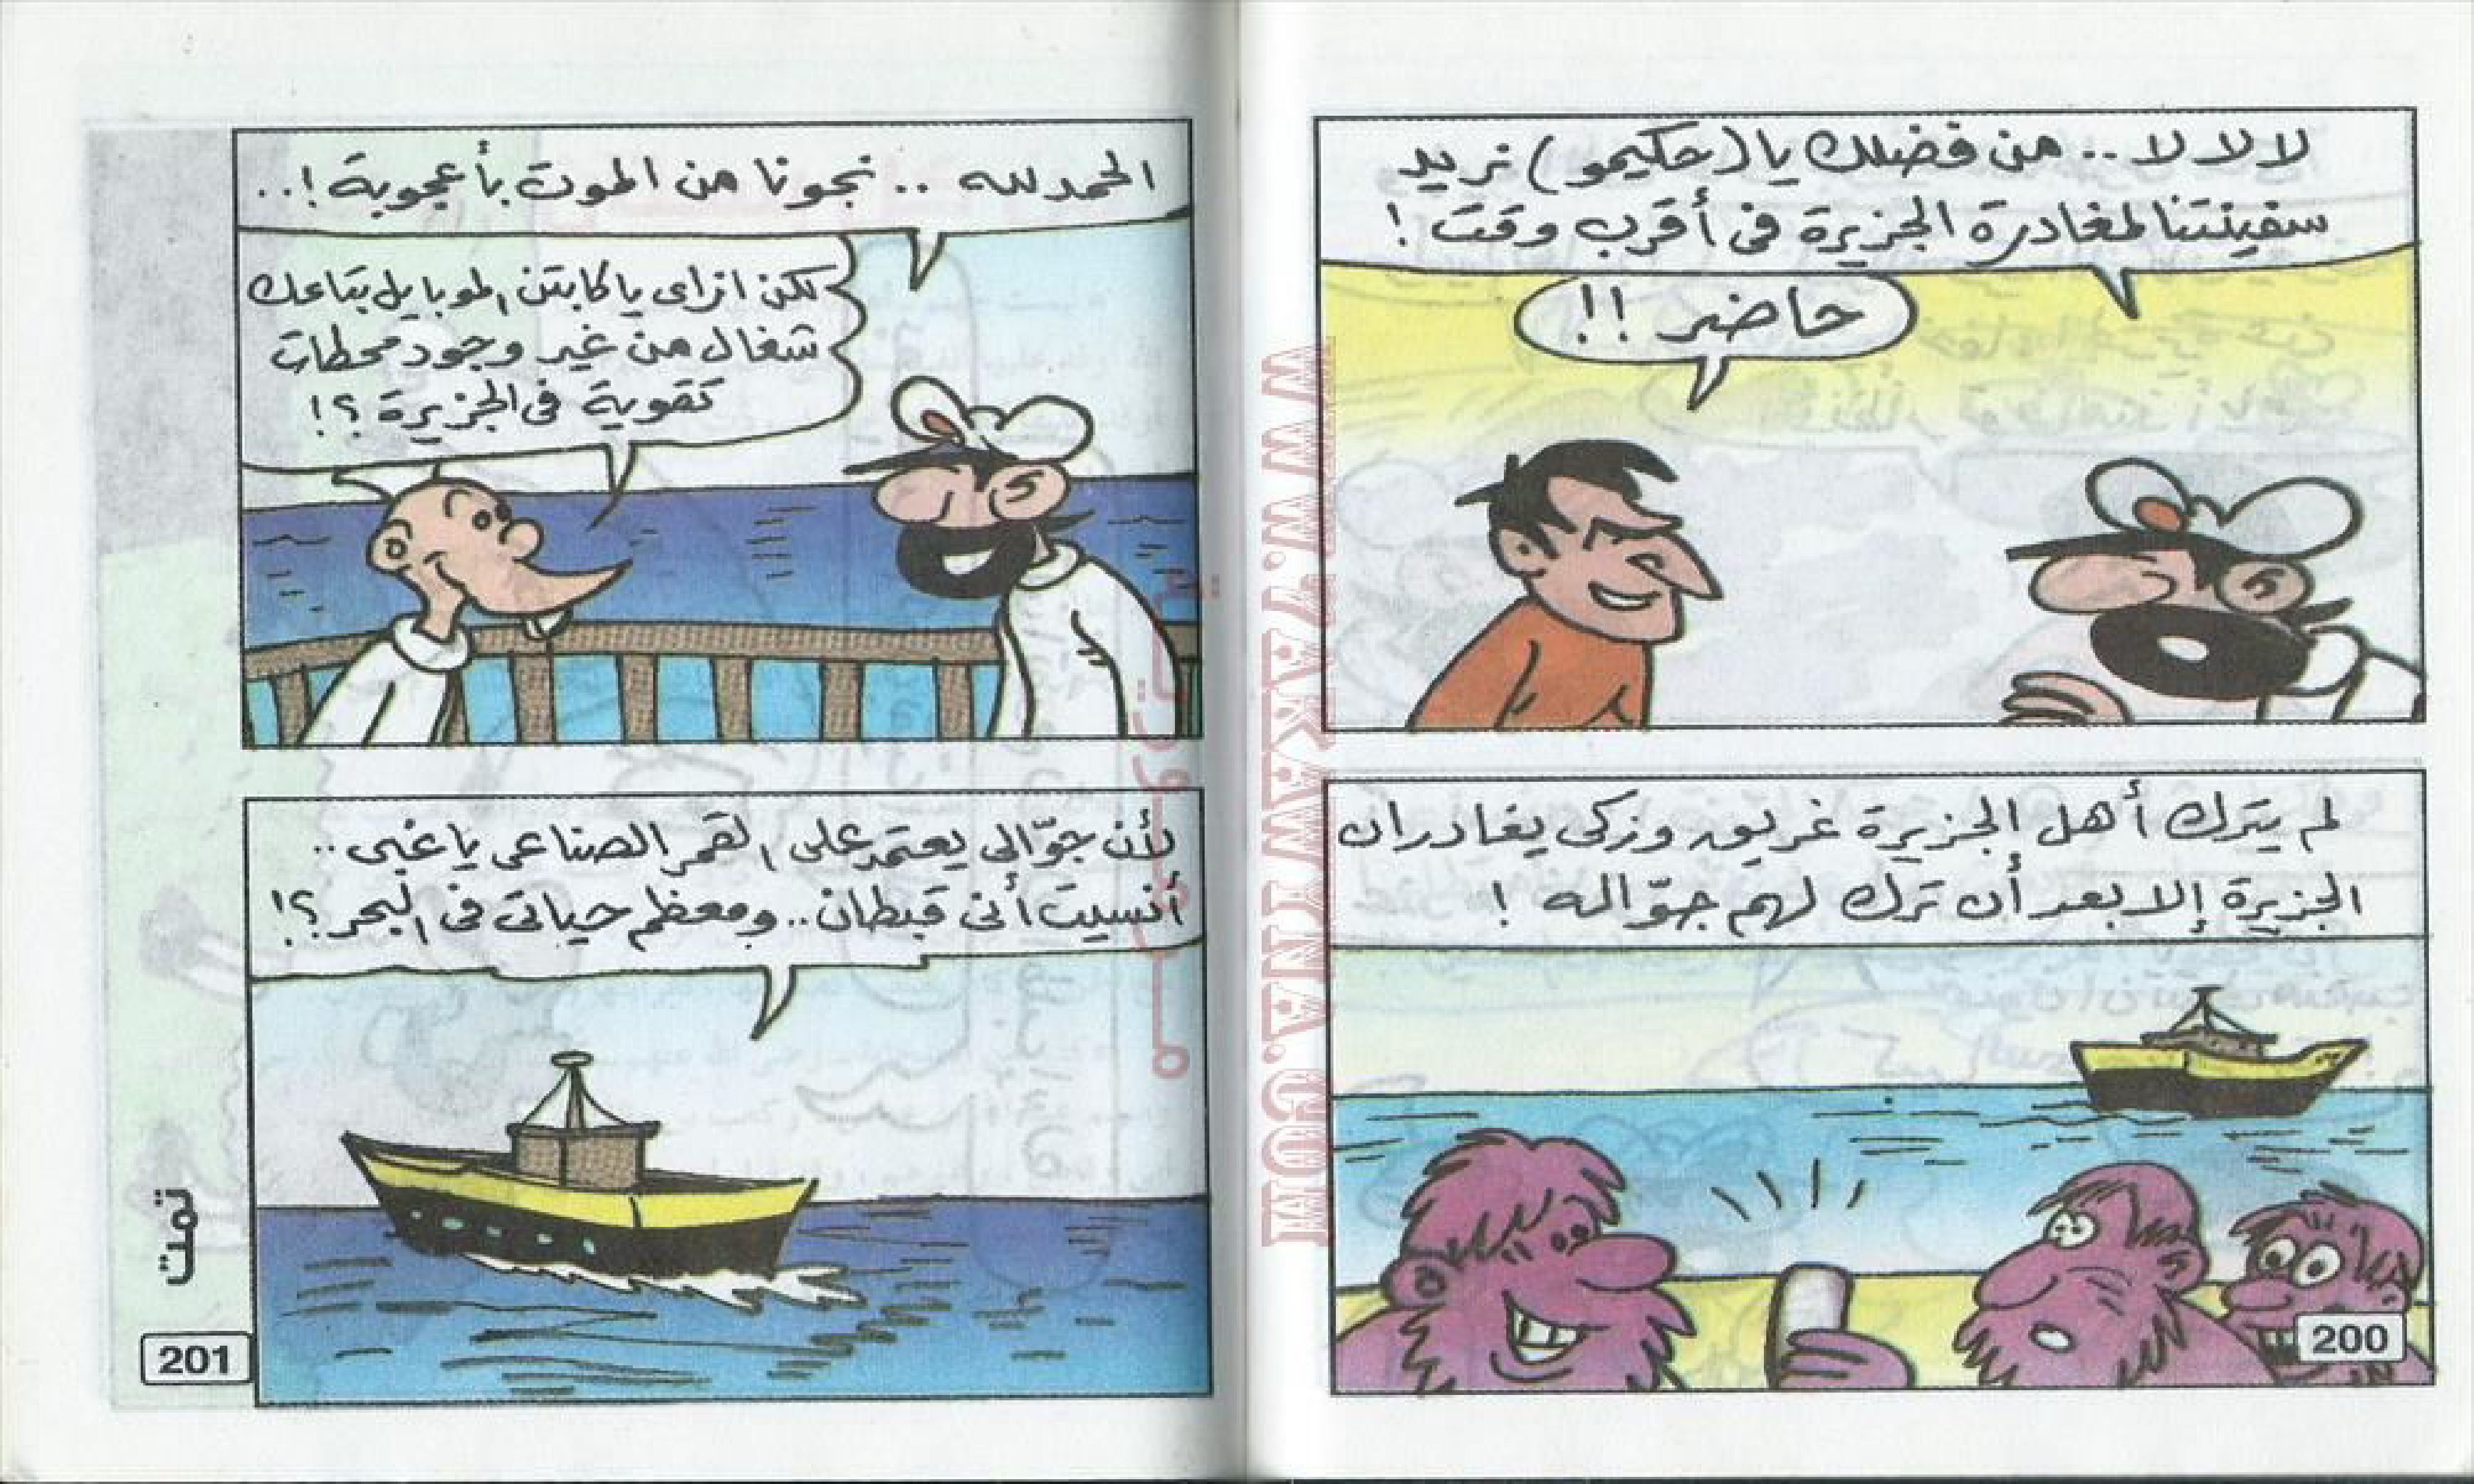 لا لا لا .. من فضلك يا (حكيمو) نريد
سفينتنا لمغادرة الجزيرة فى أقرب وقت !
حاضر !!
لم يترك أهل الجزيرة غريق وزكى يغادران
الجزيرة إلا بعد أن ترك لهم جوّاله !
200
الحمد لله .. نجونا من الموت بأعجوبة !..
لكن ازاى يا كابتن الموبايل بتاعك
شغال من غير وجود محطات
تقوية فى الجزيرة ؟!
لأن جوّالى يعتمد على القمر الصناعى يا غبى ..
أنسيت أنى قبطان .. ومعظم حياتى فى البحر ؟!
تمت
201